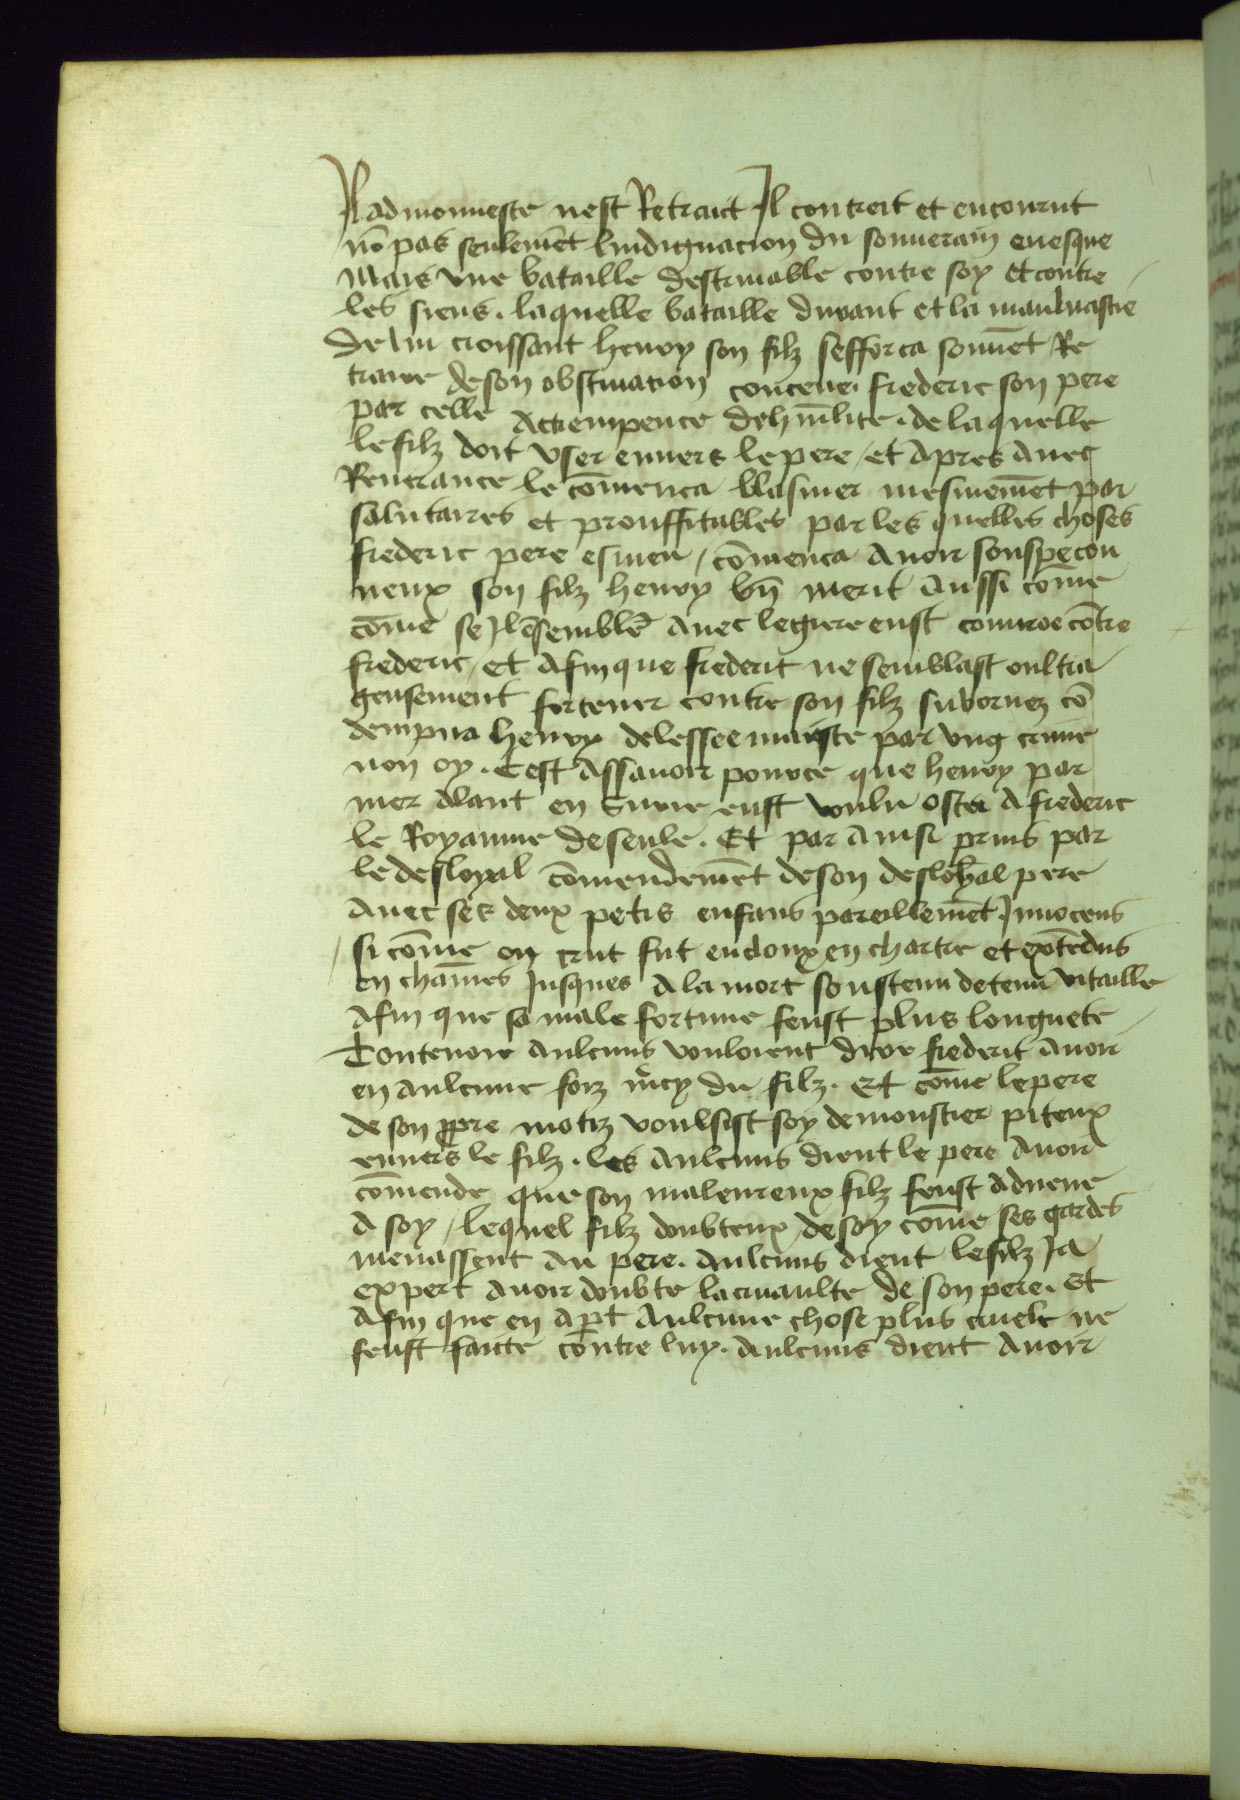 Il admonneste nest Retraict Il contreit et encourut
nō pas seulemēt lindignacion du souuerain euesque
Mais vne bataille destruiable contre soy et contre
les siens . laquelle bataille durant et la mauluastie
de lui croissant henry son filz sefforca souuēt Re
traire de son obstinacion conceue . frederic son pere
par celle Actrempence dehūilite . de laquelle
le filz doit vser enuers le pere / et Apres Auec
Reuerance le cōmenca blasmer mesmemēt par
salutaires et prouffitables par les quelles choses
frederic pere esmeu / cōmenca Auoir souspecon
neux son filz henry bn̄ merit Aussi cōme
cōme se Il ēsemblē Auec legiere eust coniuree cōtre
frederic / et Afin que frederic ne semblast oultra
geusement forcener contre son filz subornez cō
dempna henry de lessee maieste par vng crime
non oy . Cest Assauoir pource que henry par
mer Alant en Surie eust voulu oster A frederic
le Royaume de secile . Et par Ainsi prins par
le desloyal cōmendemēt de son desloyal pere
Auec ses deux petis enfans pareillemēt Innocens
si cōme on crut fut encloux en chartre et extēdus
en chaines Jusques A la mort soustenu de tenu vitaille
Afin que sa male fortune feust plus longuete
Contenoir Aulcuns vouloient dire frederic Auoir
en Aulcune foiz mcy du filz . Et cōme le pere
de son ppre motiz voulsist soy demonstrer piteux
enuers le filz . les Aulcuns dient le pere Auoir
cōmende que son maleureux filz feust Admene
A soy / lequel filz doubteux de soy cōme ses gardes
menassent Au pere . Aulcuns dient le filz Ja
expert Auoir doubte la cruaulte de son pere . Et
Afin que en Apt Aulcune chose plus cruele ne
feust faicte contre luy . Aulcuns dient Auoir